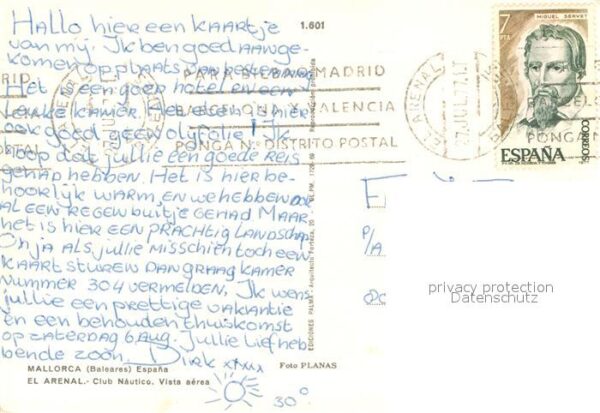 Hallo hier een kaartje
van mij. Ik ben goed aange-
komen op plaats van bestemming
Het is een goed hotel en een
leuke kamer. Het eten is hier
ook goed geen olijfolie! Ik
hoop dat jullie een goede reis
gehad hebben. Het is hier be-
hoorlijk warm, en we hebben ook
al een regenbuitje gehad Maar
het is hier een prachtig landschap
Oh ja als jullie misschien toch een
kaart sturen dan graag kamer
nummer 304 vermelden, Ik wens
jullie een prettige vakantie
en een behouden thuiskomst
op zaterdag 6 aug. Jullie liefheb
bende zoon. Dirk xxxxx
30°
MALLORCA (Baleares) España
EL ARENAL.- Club Náutico. Vista aérea
Foto PLANAS
1.601
EDICIONES PALMA - Arquitecto Forteza, 20
PARA BILBAO MADRID
BARCELONA Y VALENCIA
PONGA N.º DISTRITO POSTAL
7
PTA
MIGUEL SERVET
CORREOS
ESPAÑA
ARENAL
27 JUL. 77
P/A
privacy protection
Datenschutz